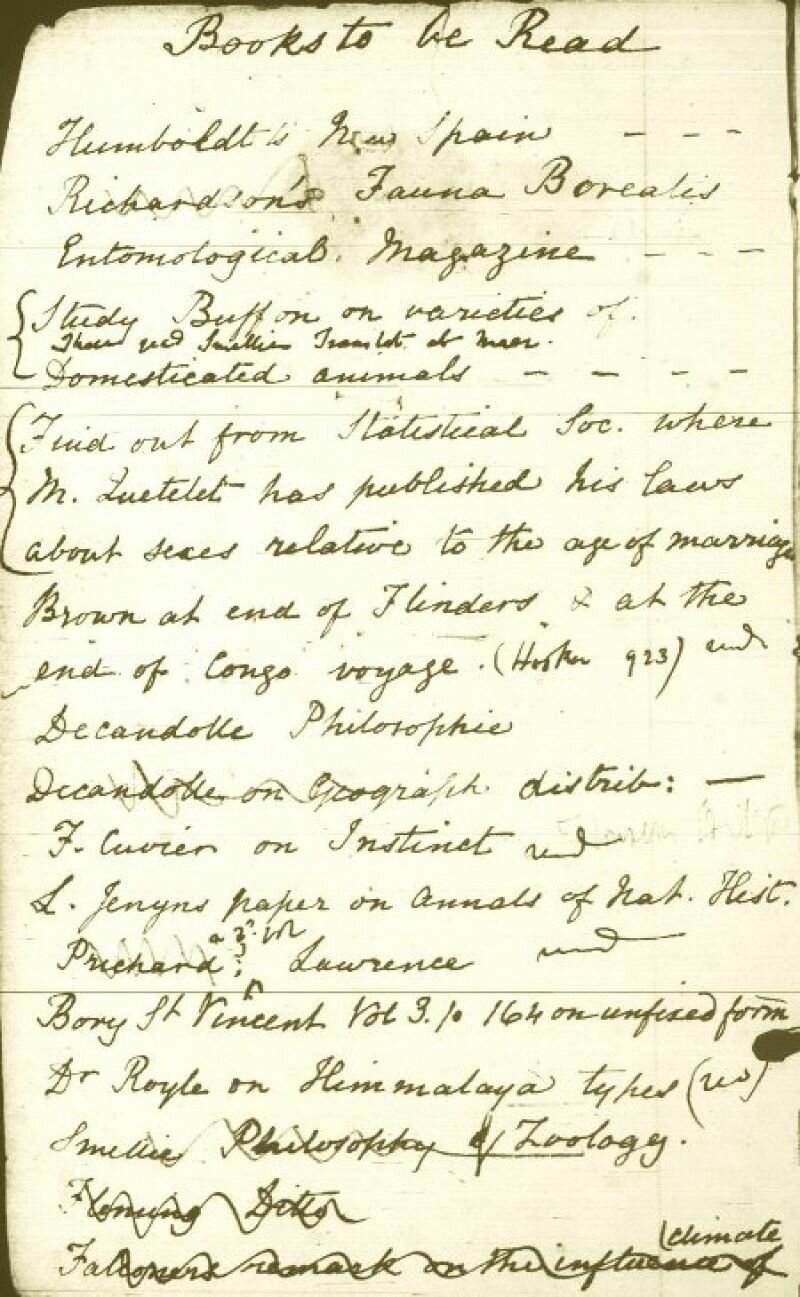 Books to be Read
Humboldt's New Spain - - -
Richardson's Fauna Borealis
Entomological Magazine - - -
Study Buffon on varieties of
Smellie Translat
Domesticated animals - - - -
Find out from Statistical Soc. where
M. Quetelet has published his laws
about sexes relative to the age of marriage
Brown at end of Flinders & at the
end of Congo voyage. (Hooker 923) read
Decandolle Philosophie
Decandolle on Geograph distrib: —
F. Cuvier on Instinct read
L. Jenyns paper on Annals of Nat. Hist.
a 3d vol
Prichard; Lawrence read
Bory St Vincent Vol 3. p 164 on unfixed form
Dr Royle on Himmalaya types (read)
Smellie Philosophy of Zoology.
Fleming Ditto
climate
Falconers remark on the influence of